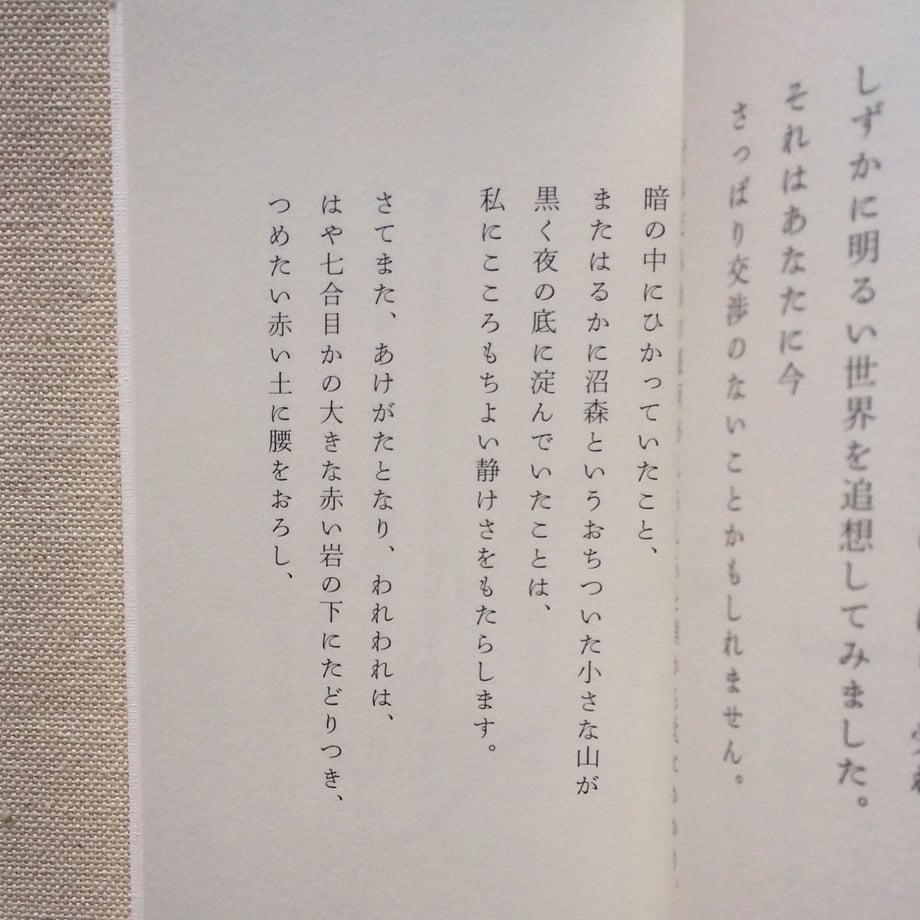 しずかに明るい世界を追想してみました。
それはあなたに今
さっぱり交渉のないことかもしれません。
暗の中にひかっていたこと、
またはるかに沼森というおちついた小さな山が
黒く夜の底に淀んでいたことは、
私にこころもちよい静けさをもたらします。
さてまた、あけがたとなり、われわれは、
はや七合目かの大きな赤い岩の下にたどりつき、
つめたい赤い土に腰をおろし、